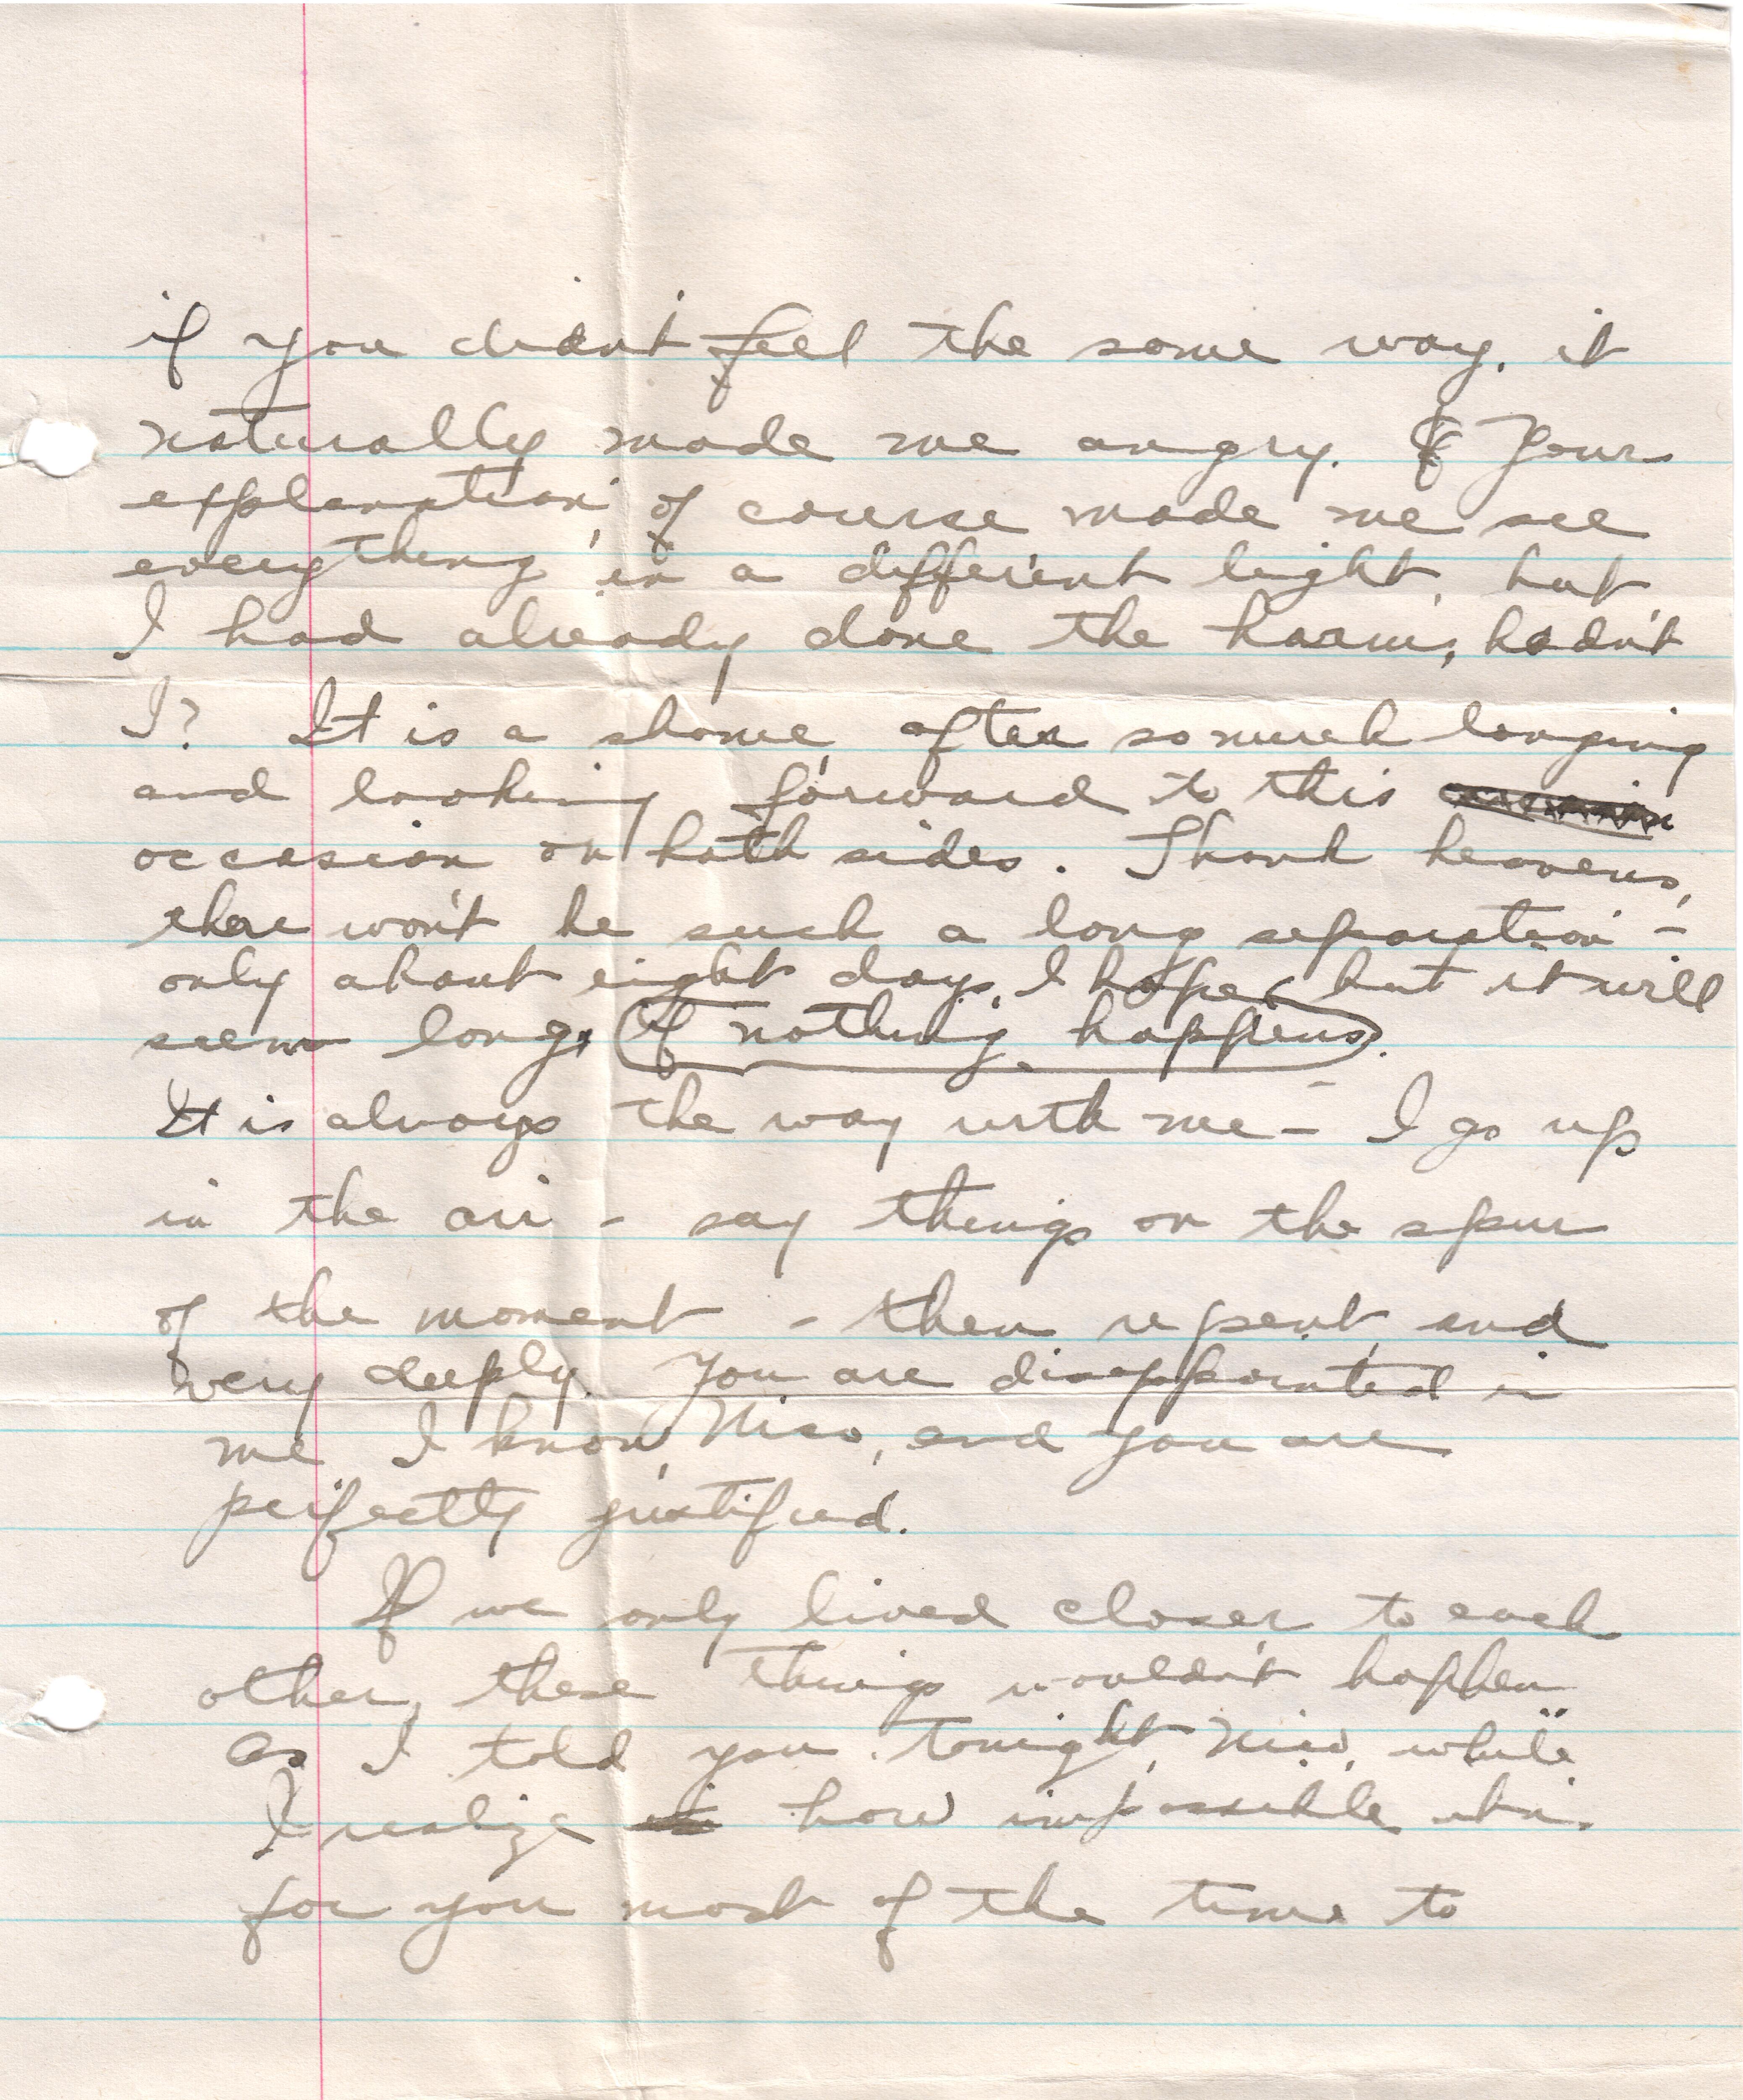 if you didn't feel the same way, it
naturally made me angry. Your
explanation, of course made me see
everything in a different light, but
I had already done the harm, hadn't
I? It is a shame, after so much longing
and looking forward to this
occasion on both sides. Thank heavens,
there won't be such a long separation -
only about eight days, I hope, but it will
seem long, (If nothing happens).
It is always the way with me - I go up
in the air - say things on the spur
of the moment - then repent, and
very deeply. You are disappointed in
me, I know, and you are
perfectly justified.
If we only lived closer to each
other, these things wouldn't happen
as I told you tonight, while
I realize how impossible it is
for you most of the time to